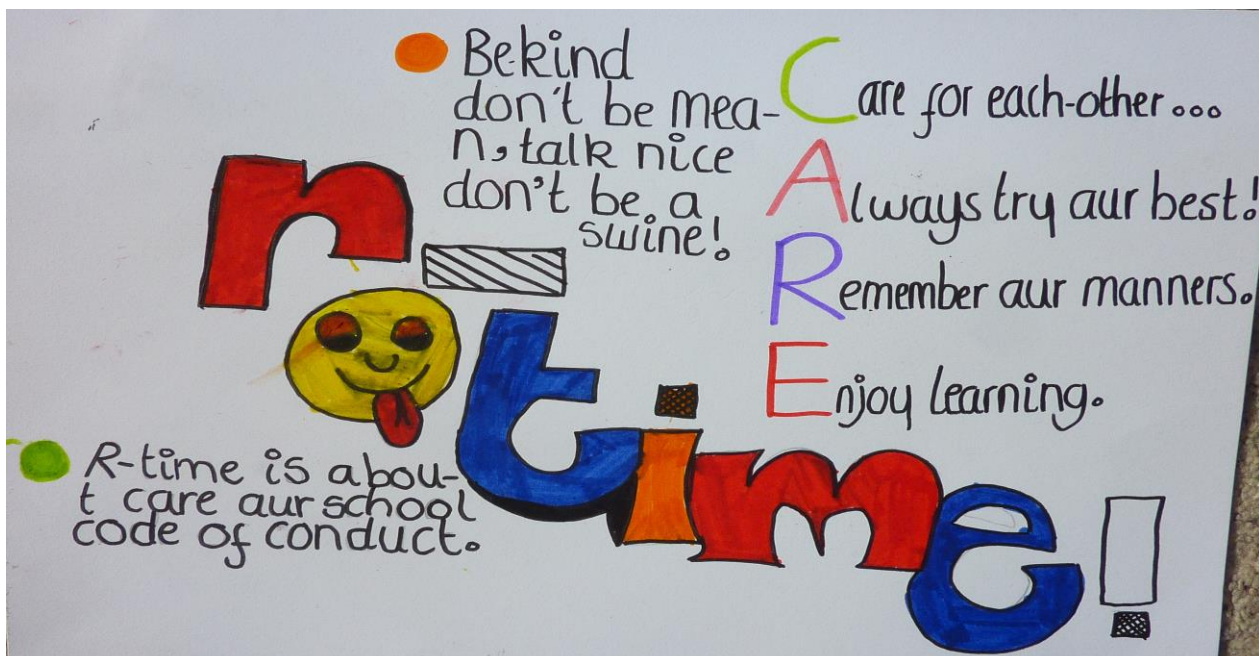 Be kind
don't be mea-
n, talk nice
don't be a
swine!
Care for each-other...
Always try aur best!
Remember aur manners.
Enjoy learning.
r-
time!
R-time is abou-
t care aur school
code of conduct.